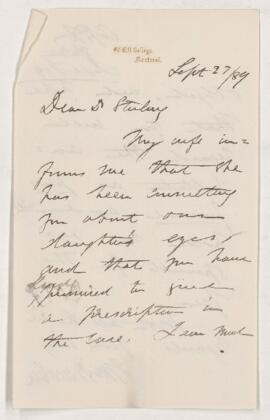 McGill College,
Montreal.
Sept 27/89
Dear Dr Stirling
My wife in=
forms me that she
has been consulting
you about our
daughter's eyes,
and that you have
kindly
promised to give
a prescription in
the case. I am much